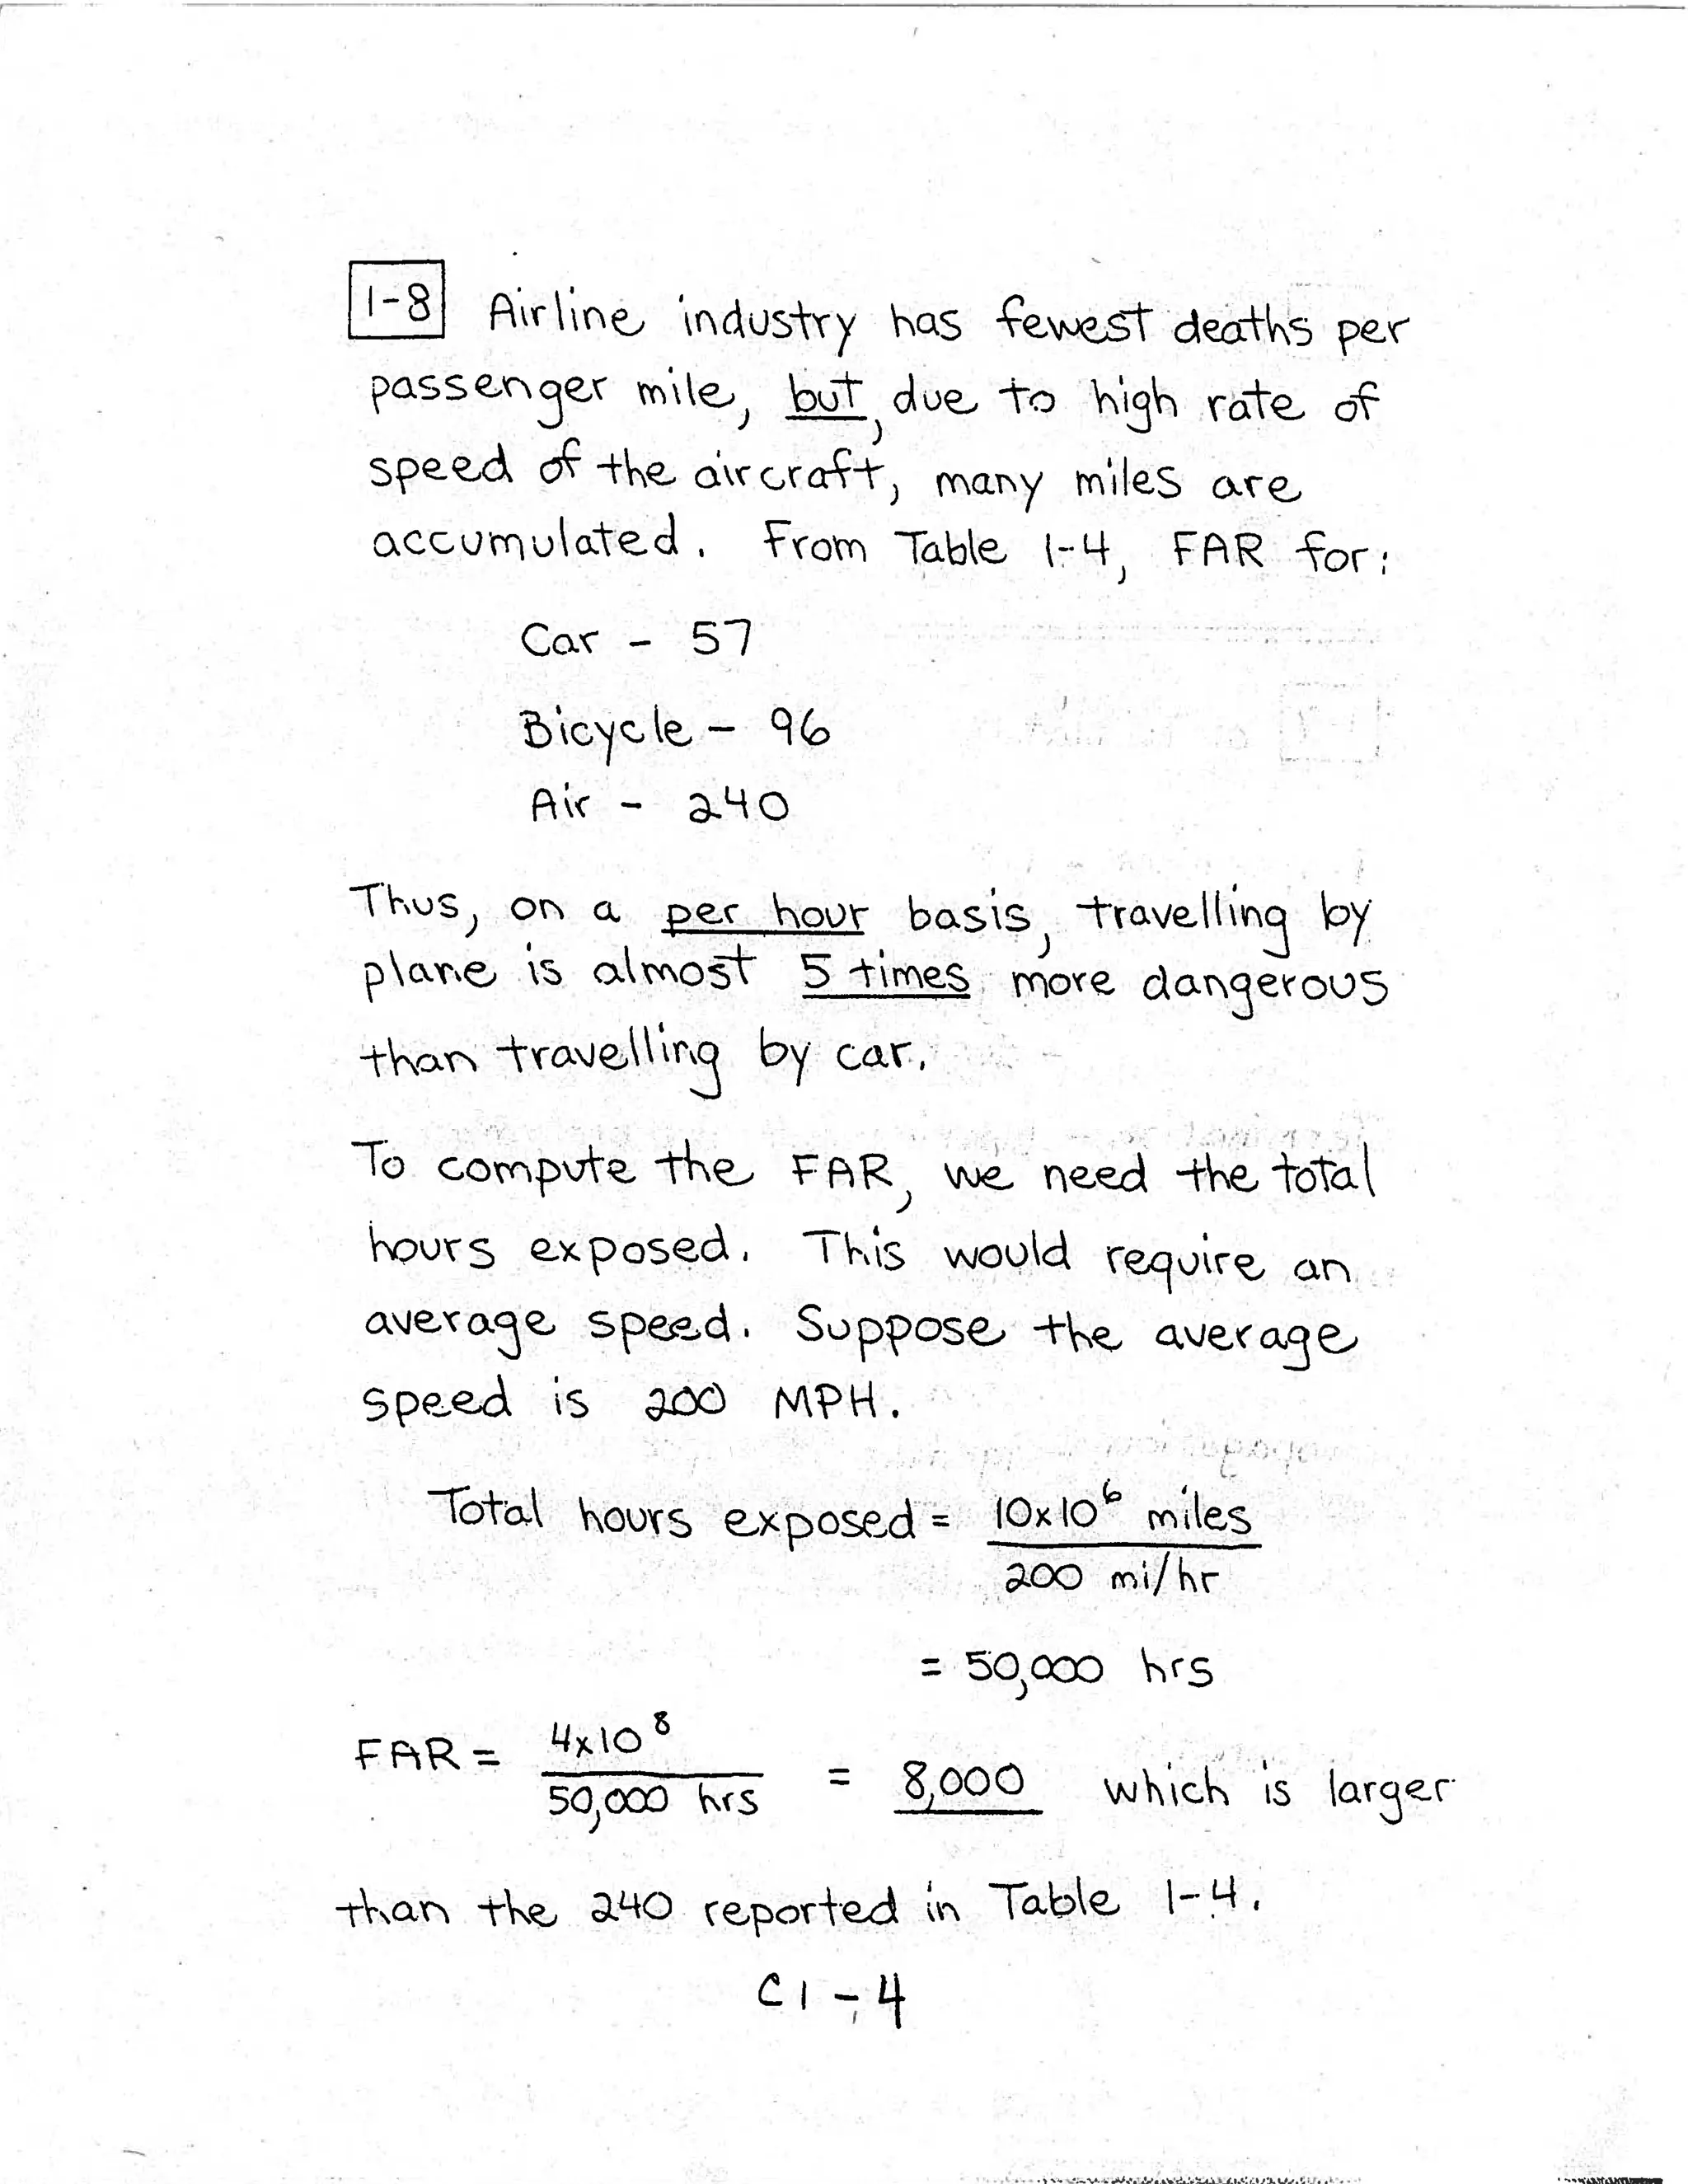 1-8 Airline industry has fewest deaths per
passenger mile, but, due to high rate of
speed of the aircraft, many miles are
accumulated. From Table 1-4, FAR for:
Car - 57
Bicycle - 96
Air - 240
Thus, on a per hour basis, travelling by
plane is almost 5 times more dangerous
than travelling by car.
To compute the FAR, we need the total
hours exposed. This would require an
average speed. Suppose the average
speed is 200 MPH.
Total hours exposed = 10x10^6 miles
200 mi/hr
= 50,000 hrs
FAR = 4x10^8 / 50,000 hrs = 8,000 which is larger
than the 240 reported in Table 1-4.
C1-4